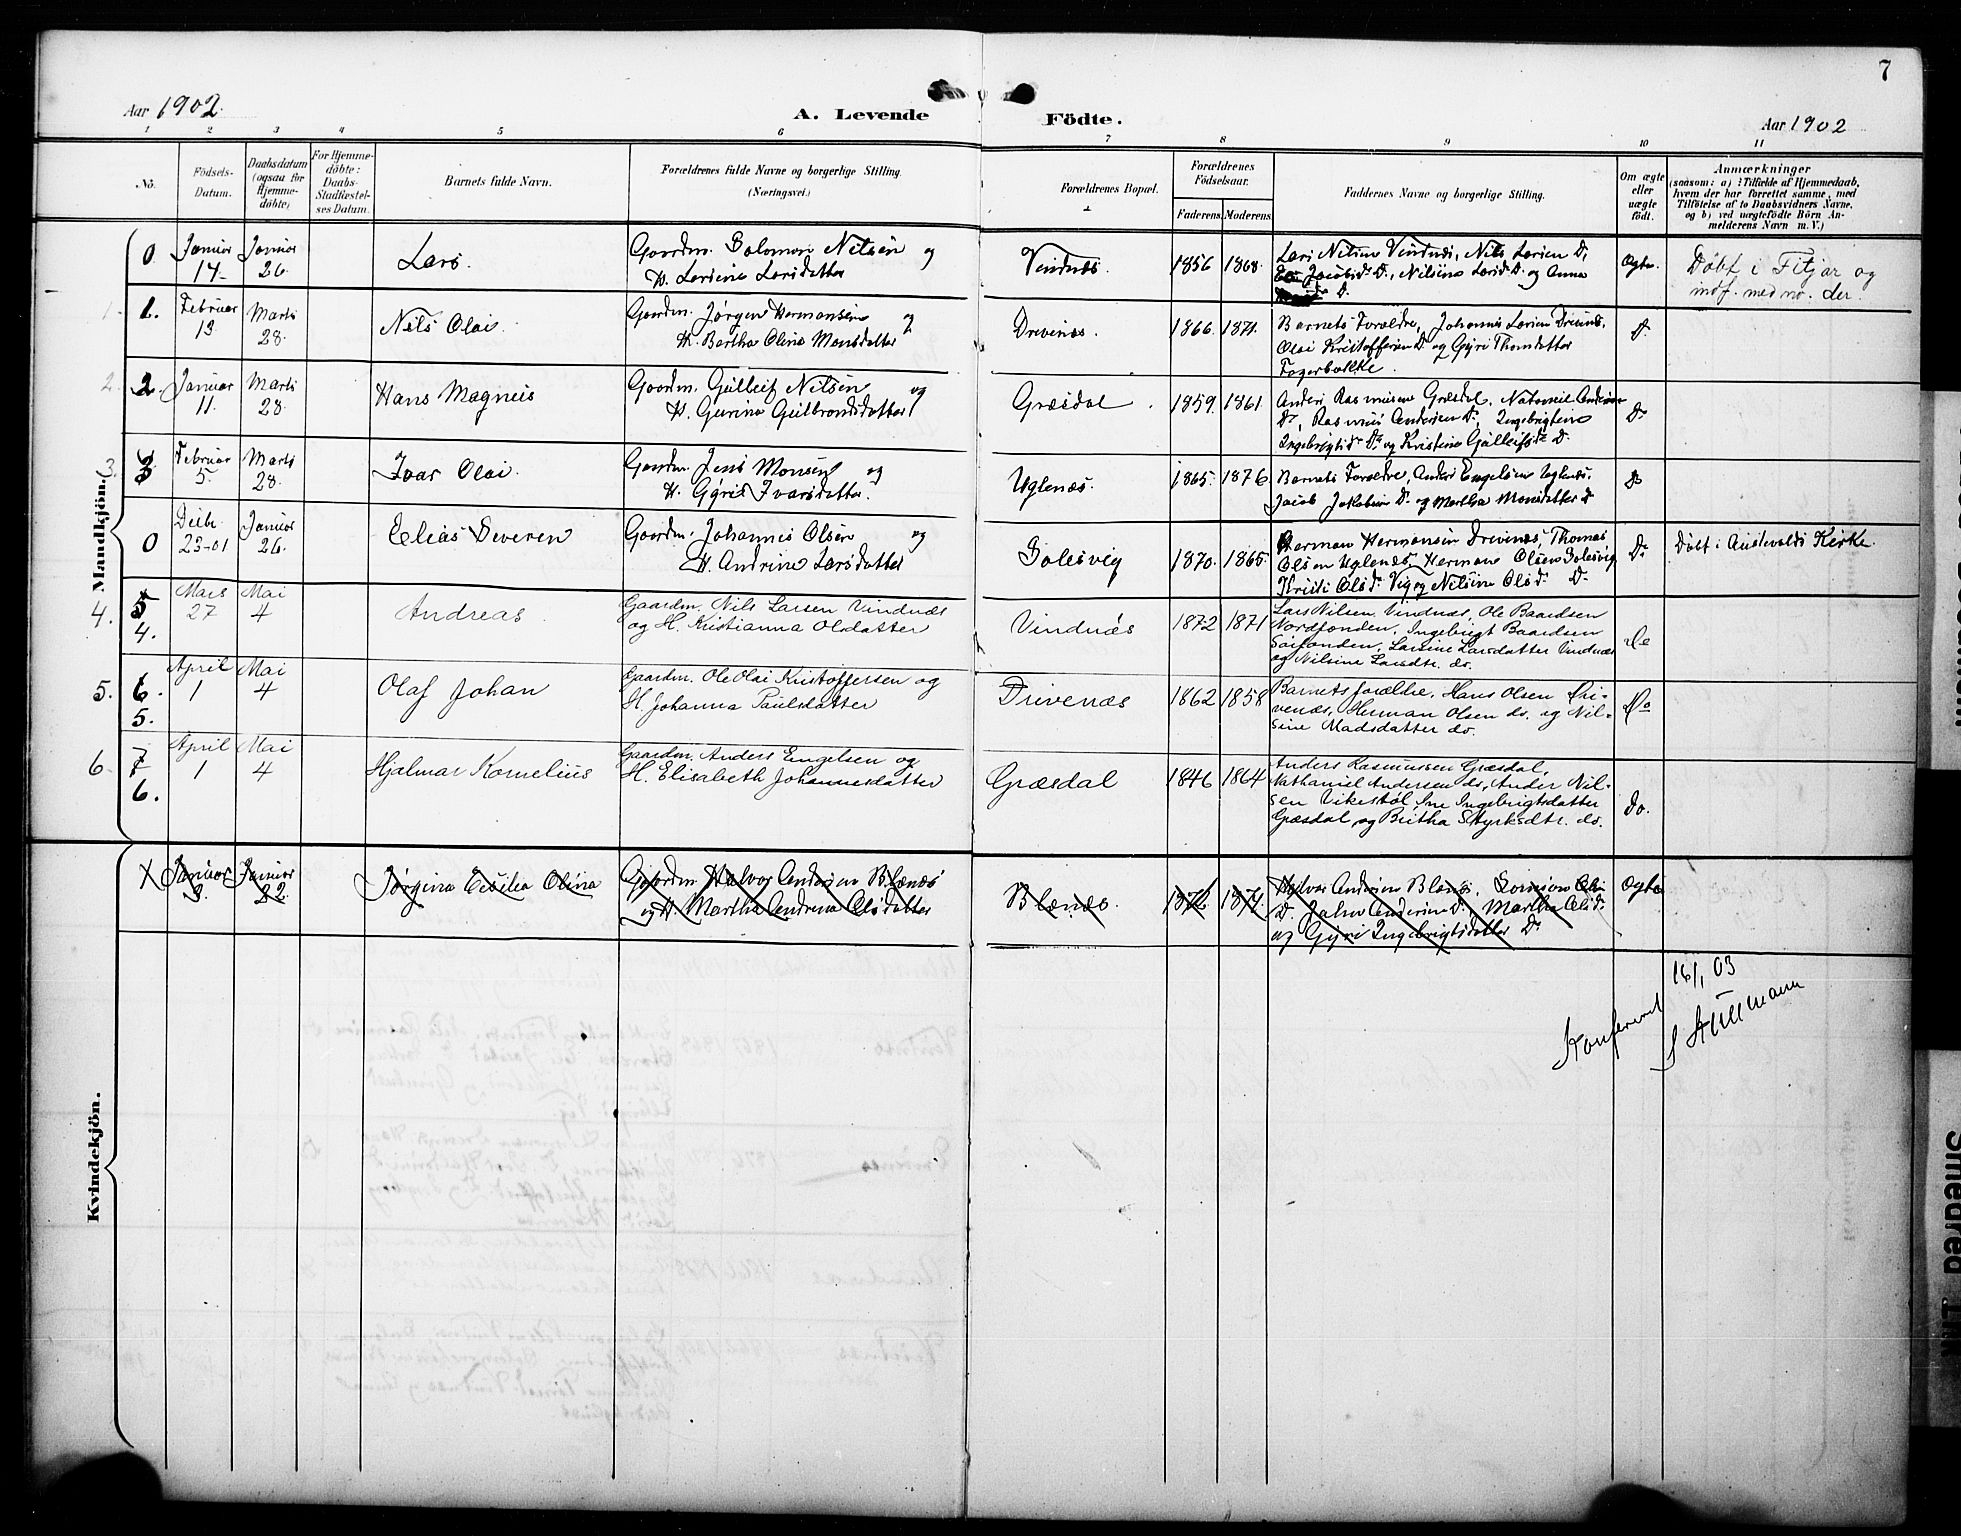 7
Aar 1902.
A. Levende Födte.
Aar 1902
1 2 3 4 5 6 7 8 9 10 11
No.
Födsels-
Datum.
Daabsdatum
(ogsaa for
Hjemme-
döbte)
For Hjemme-
döbte:
Daabs-
Stadfæstel-
ses Datum.
Barnets fulde Navn.
Forældrenes fulde Navne og borgerlige Stilling.
(Næringsvei.)
Forældrenes Bopæl.
Forældrenes
Födselsaar.
Faderens. Moderens.
Faddernes Navne og borgerlige Stilling.
Om ægte
eller
uægte
födt.
Anmærkninger
(saasom: a) i Tilfælde af Hjemmedaab,
hvem der har forrettet samme, med
Tilföielse af to Daabsvidners Navne,
og b) ved uægtefödte Börn An-
melderens Navn m. V.)
Mandkjön.
0
Januar
14
Januar
26.
Lars.
Gaardm. Salomon Nilsen og
H. Larsine Larsdatter
Vindnæs.
1856 1868.
Lars Nilsen Vindnæs, Nils Larsen Do,
Jacobsdr Do, Nilsine Larsdr Do og Anna
Do.
Ægte.
Döbt i Fitjar og
indf. med no. der.
1. 1.
Februar
13
Marts
28.
Nils Olai.
Gaardm. Jørgen Hermansen og
H. Bertha Olina Monsdatter
Drevenæs.
1866. 1871.
Barnets Forældre, Johannes Larsen Drevnæs,
Olai Kristoffersen Do og Gyri Thomdatter
Fagerbakke.
Do
2. 2
Januar
11.
Marts
28.
Hans Magnus
Gaardm. Gulleif Nilsen og
H. Gurine Gulbrandsdatter
Græsdal.
1859. 1861.
Anders Rasmusen Græsdal, Natanael Andersen
Do, Rasmus Andersen Do, Ingebrigtine
Ingebrigtsdr Do og Kristine Gulleifsdr Do.
Do
3. 3
Februar
5.
Marts
28.
Ivar Olai.
Gaardm. Jens Monsen og
H. Gyrid Ivarsdatter.
Uglenæs.
1865. 1876.
Barnets Forældre, Anders Engelsen Uglenæs,
Jacob Jakobsen Do og Martha Monsdatter Do
Do
0
Decbr.
23-01
Januar
26.
Elias Severen
Gaardm. Johannes Olsen og
H. Andrine Larsdatter
Solesvig
1870. 1865.
Herman Hermansen Drevenæs, Thomas
Olsen Uglenæs, Herman Olsen Solesvig
Kristi Olsdr Vig og Nilsine Olsdr Do
Do
Döbt i Austevolds Kirke.
4. 5
4.
Mars
27
Mai
4
Andreas
Gaardm. Nils Larsen Vindnæs
og H. Kristianna Olsdatter
Vindnæs
1872 1871
Lars Nilsen Vindnæs, Ole Baardsen
Nordfonden, Ingebrigt Baardsen
Sörfonden, Larsine Larsdatter Vindnæs
og Nilsine Larsdtr. do.
Do
5. 6.
5.
April
1
Mai
4
Olaf Johan
Gaardm. Ole Olai Kristoffersen og
H. Johanna Paulsdatter
Drivenæs
1862 1858
Barnets forældre, Hans Olsen Dri-
venæs, Herman Olsen do. og Nil-
sine Madsdatter do.
Do
6. 7
6.
April
1
Mai
4
Hjalmar Kornelius
Gaardm. Anders Engelsen og
H. Elisabeth Johannesdatter
Græsdal
1846 1864
Anders Rasmussen Græsdal,
Nathaniel Andersen do, Ander Nil-
sen Vikestøl, Ine Ingebrigtsdatter
Græsdal og Britha Styrksdtr. do.
Do.
Kvindekjön.
Januar
3.
Januar
22.
Jørgina Cecilia Olina
Gaardm. Halvor Andersen Blænæs
og H. Martha Andrena Olsdatter
Blænæs.
1872. 1874.
Halvor Andersen Blænæs,
Do. Johan Andersen Do, Martha Olsdr
og Gyri Ingebrigtsdatter Do
Ægte
Konfereret 16/1 03
S Küllmann